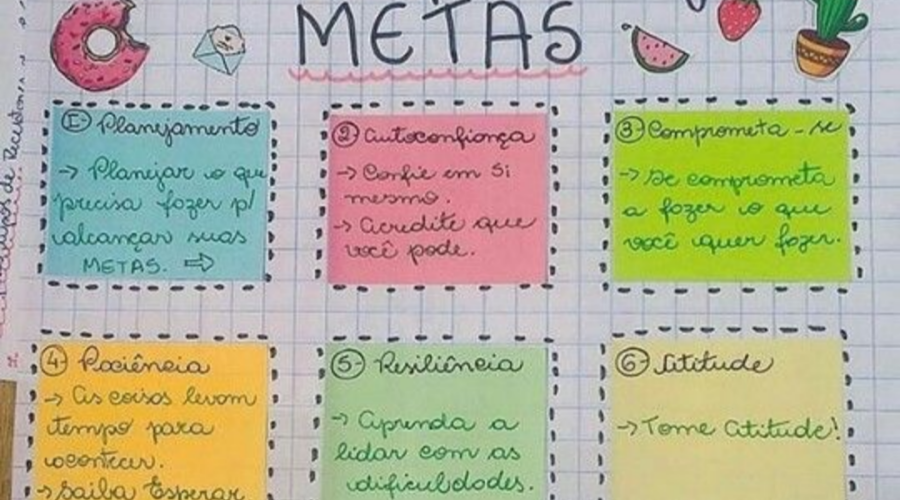 METAS
1 Planejamento
→ Planejar o que
precisa fazer p/
alcançar suas
METAS. ⇨
2 Autoconfiança
→ Confie em si
mesmo.
→ Acredite que
você pode.
3 Comprometa-se
→ se comprometa
a fazer o que
você quer fazer.
4 Paciência
→ As coisas levam
tempo para
acontecer.
→ Saiba Esperar
5 Resiliência
→ Aprenda a
lidar com as
dificuldades.
6 Atitude
→ Tome Atitude!